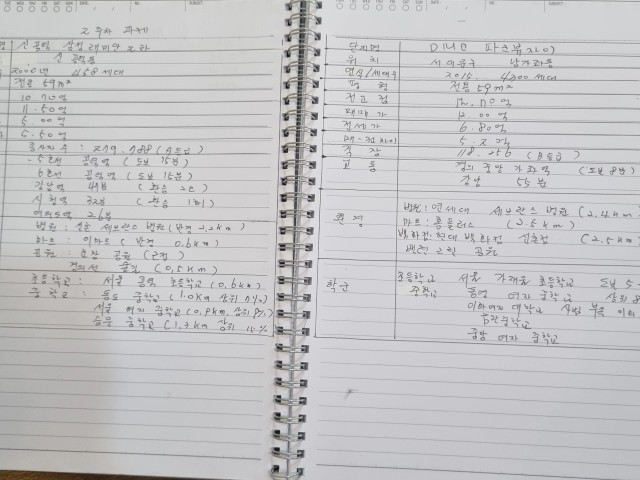 2주차 과제
신공덕 삼성래미안 2차
신공덕동
2000년 458세대
전용 59m²
10.70억
11.50억
5.00억
6.50억
종사자수 : 279,788 (
5호선 공덕역 (도보 15분)
6호선 공덕역 (도보 15분)
강남역 41분 (환승 2회)
시청역 32분 (환승 1회)
여의도역 26분
병원 : 신촌 세브란스 병원 (반경 2.2km)
마트 : 이마트 (반경 0.6km)
공원 : 효창 공원 (근접)
경의선 숲길 (0.5km)
초등학교 : 서울 공덕 초등학교 (0.6km)
중학교 : 동도 중학교 (1.0km 상위
서울 여자 중학교 (0.9km 상위 8%)
숭문 중학교 (1.3km 상위 15%
단지명 DMC 파크뷰자이
위치 서대문구 남가좌동
연식/세대수 2015. 4300세대
평형 전용 59m²
전고점 12.70억
매매가 12.00억
전세가 6.80억
매-전차이 5.2억
직장 118,256 (
교통 경의 중앙 가좌역 (도보 8분)
강남 55분
환경
병원 : 연세대 세브란스 병원 (2.4km)
마트 : 홈플러스 (2.5km)
백화점 : 현대 백화점 신촌점 (2.5km
백련 근린 공원
학군
초등학교 서울 가재울 초등학교 도보 5
중학교 동명 여자 중학교 상위 8
이화여자 대학교 사범 부속 이화
금란중학교
중앙 여자 중학교